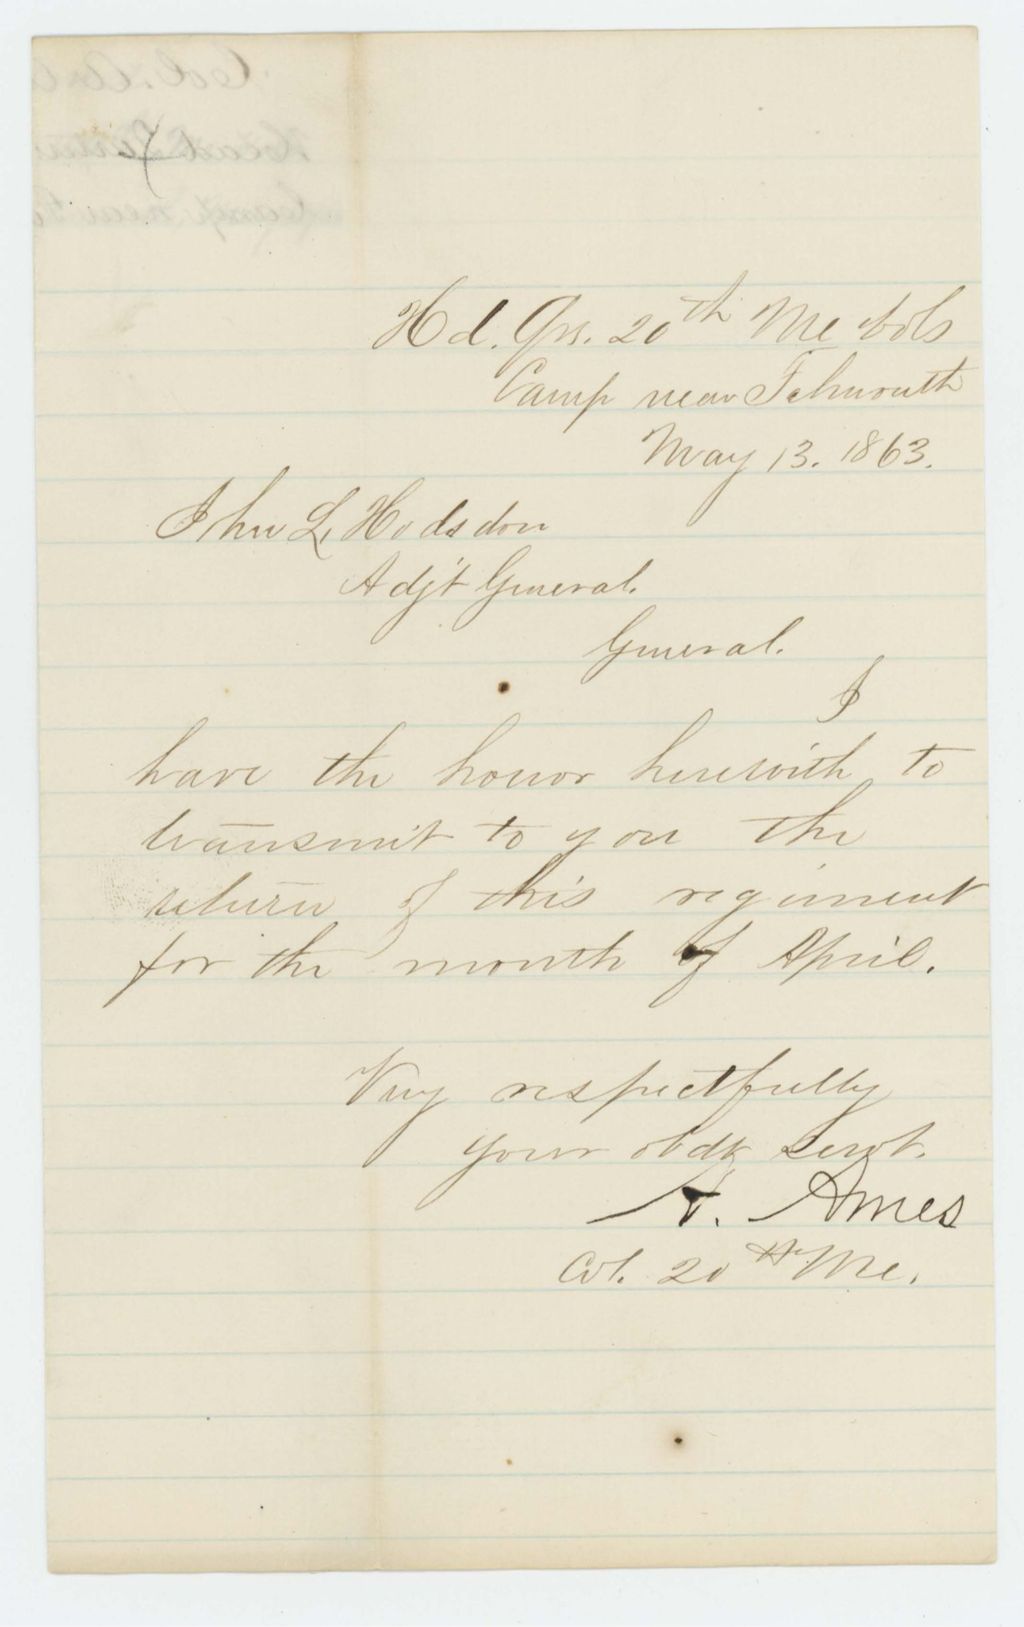 Hd. Qrs. 20th Me Vols
Camp near Falmouth
May 13. 1863.
John L. Hodsdon
Adj't General.
General.
I
have the honor herewith to
transmit to you the
return of this regiment
for the month of April.
Very respectfully
your obdt servt.
A. Ames
Col. 20th Me.